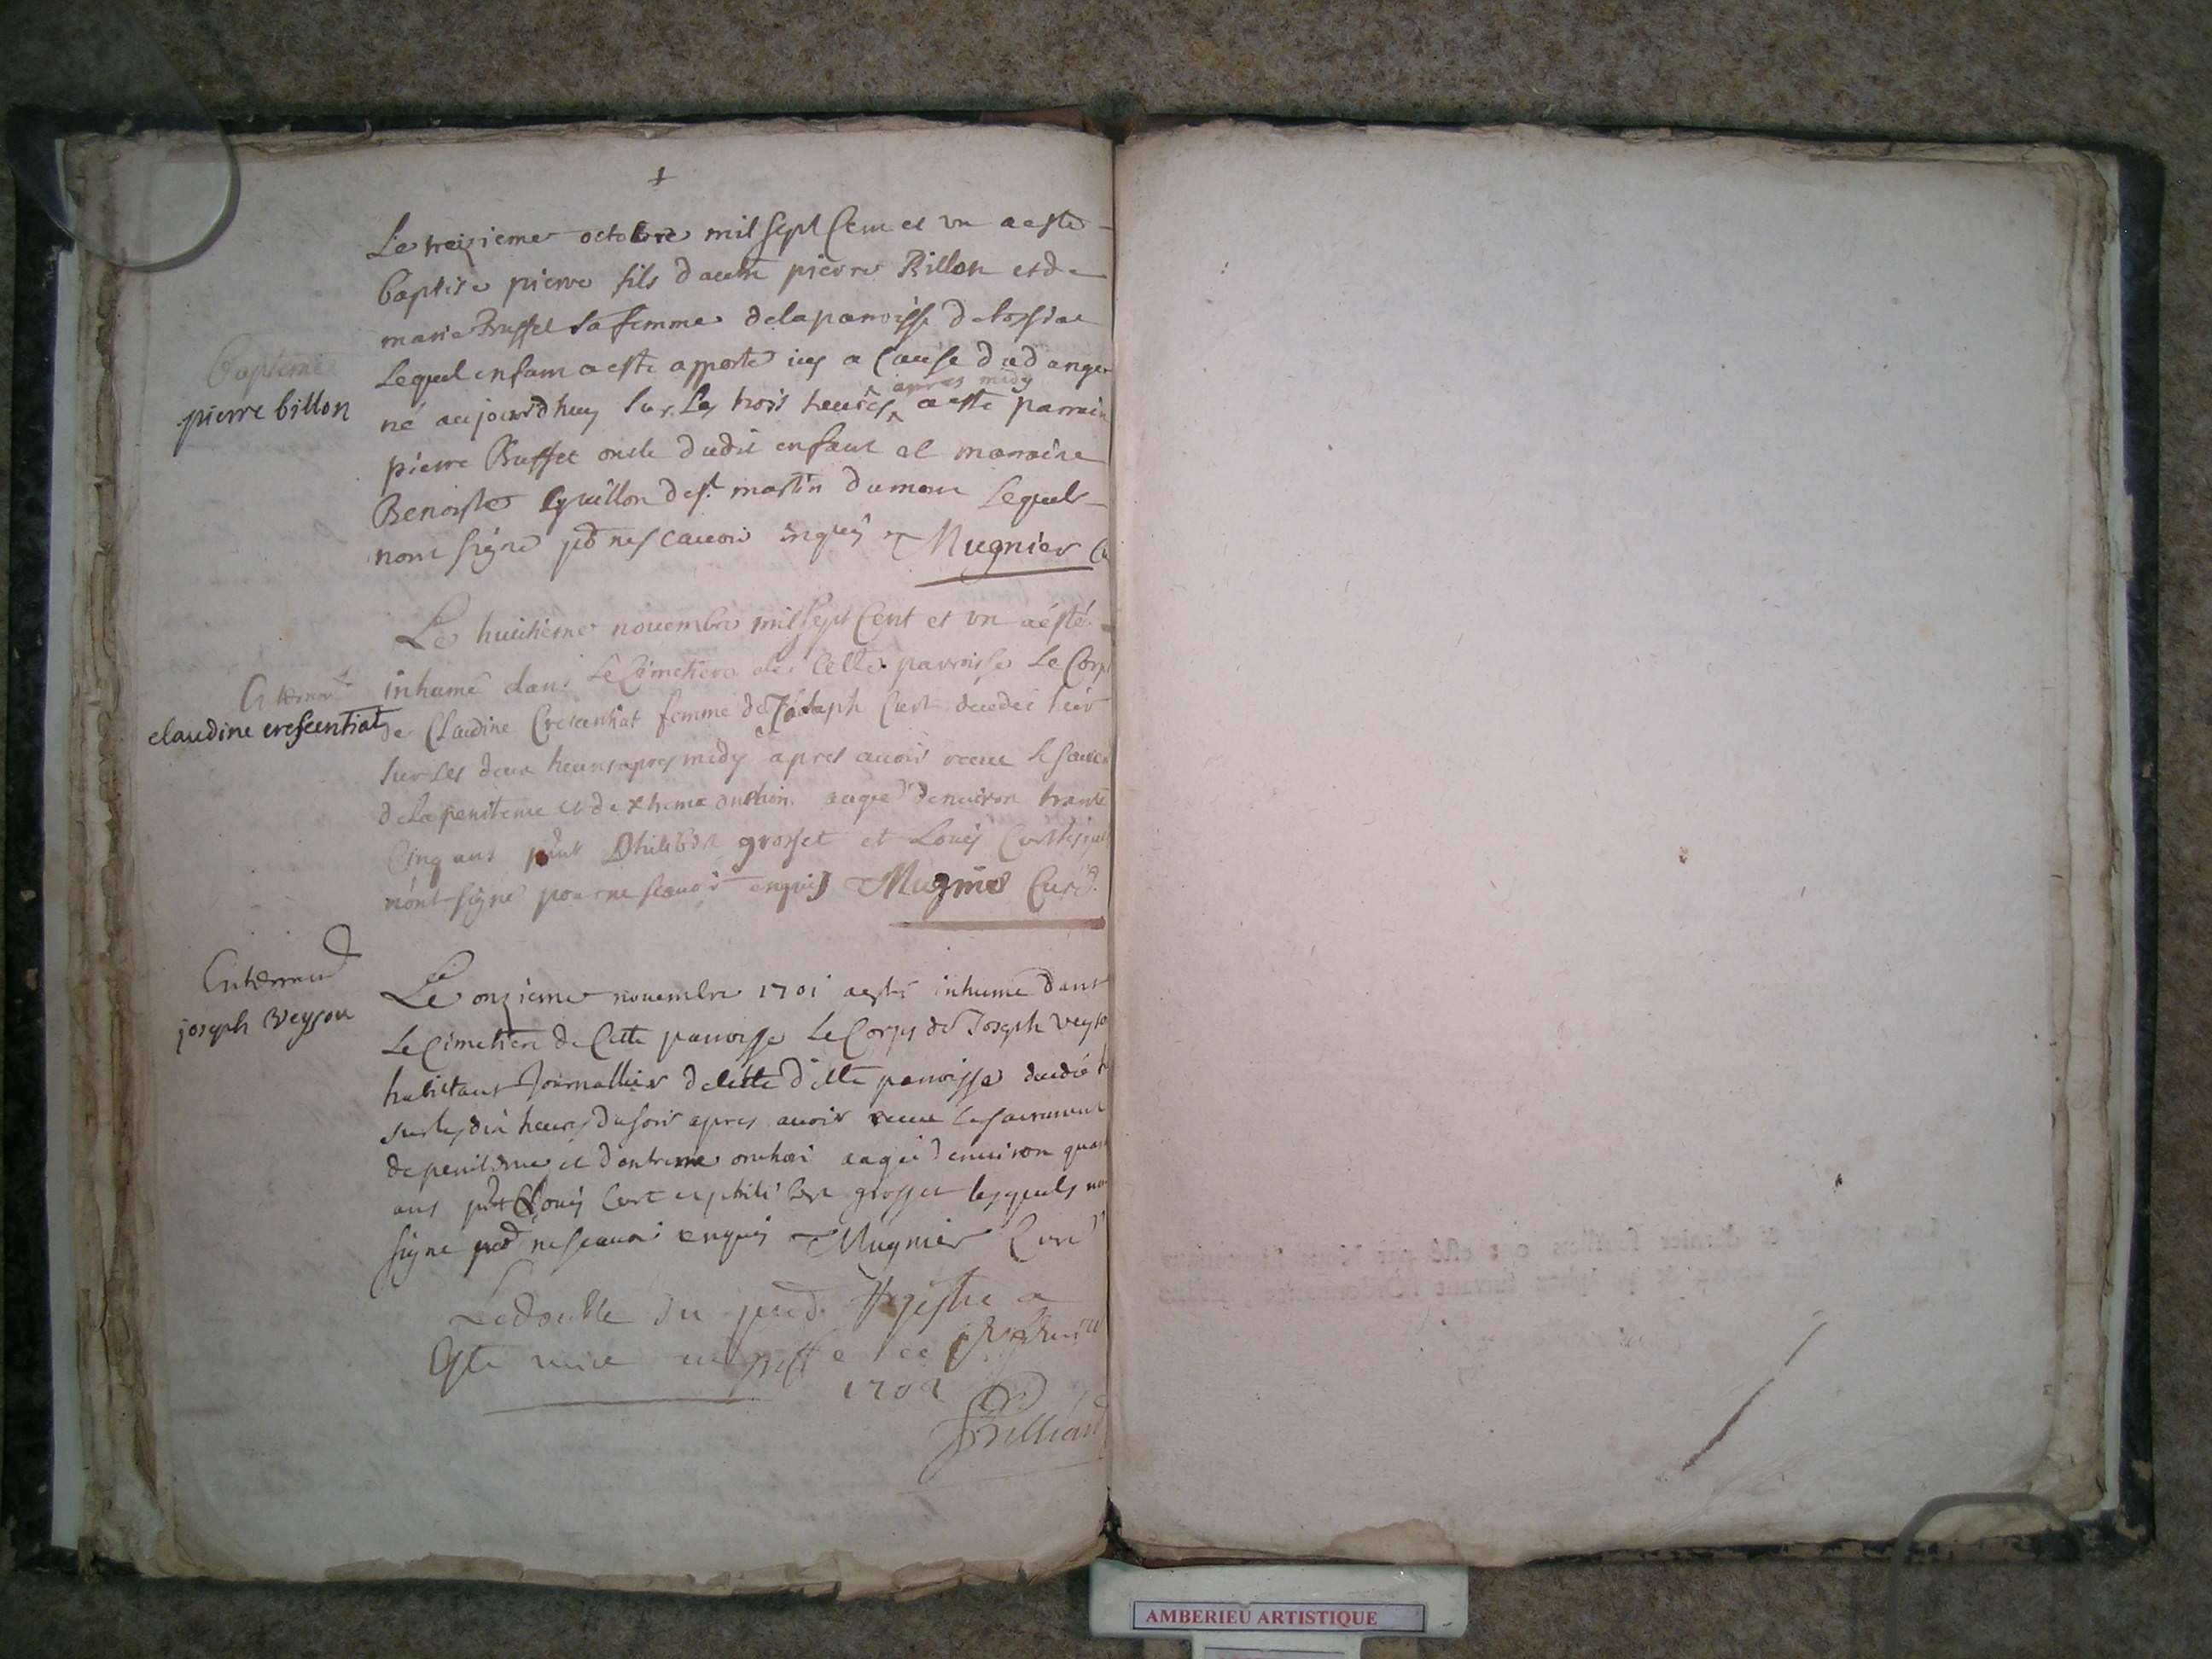 +
Le treizieme octobre mil sept Cent et vn a este
Baptise pierre fils d'autre pierre Billon et de
marie Buffet sa femme de la parroisse de
Lequel enfant a este apporte icy a Cause du danger
né aujourdhuy sur Les trois heures apres midy a esté parrain
pierre Buffet oncle dudit enfant et marraine
Benoiste Guillon de st. martin du mont Lequels
n'ont signé pr ne scauoir enquis Mugnier Cu
Baptême
pierre billon
Le huictieme nouembre mil sept Cent et vn a ésté
inhumé dans Le Cimetiere de Cette parroisse Le Corps
de Claudine Crescentiat femme de Joseph Cret decedée hier
sur Les deux heures apres midy apres auoir receue le sacrem
de La penitence et de extreme onction aagée denuiron trante
Cinq ans pnt Philibert grosset et Louis Cret lesquels
n'ont signé pour ne scauoir enquis Mugnier Curé.
Enterremt
claudine crescentiat
Enterremt
joseph Veyson
Le onzieme nouembre 1701 a esté inhumé dans
Le Cimetiere de Cette parroisse Le Corps de Joseph veyso
habitant Journallier de cette ditte parroisse decedé h
sur les dix heures du soir apres auoir receue les sacrement
de penitence et d'extreme onction aagé d'enuiron quar
ans pnt Louis Cret et philibert grosset lesquels no
signe pour ne scauoir enquis Mugnier Curé
Le double du pred. Registre a
Esté mis au greffe ce
1702
Billiard
AMBERIEU ARTISTIQUE